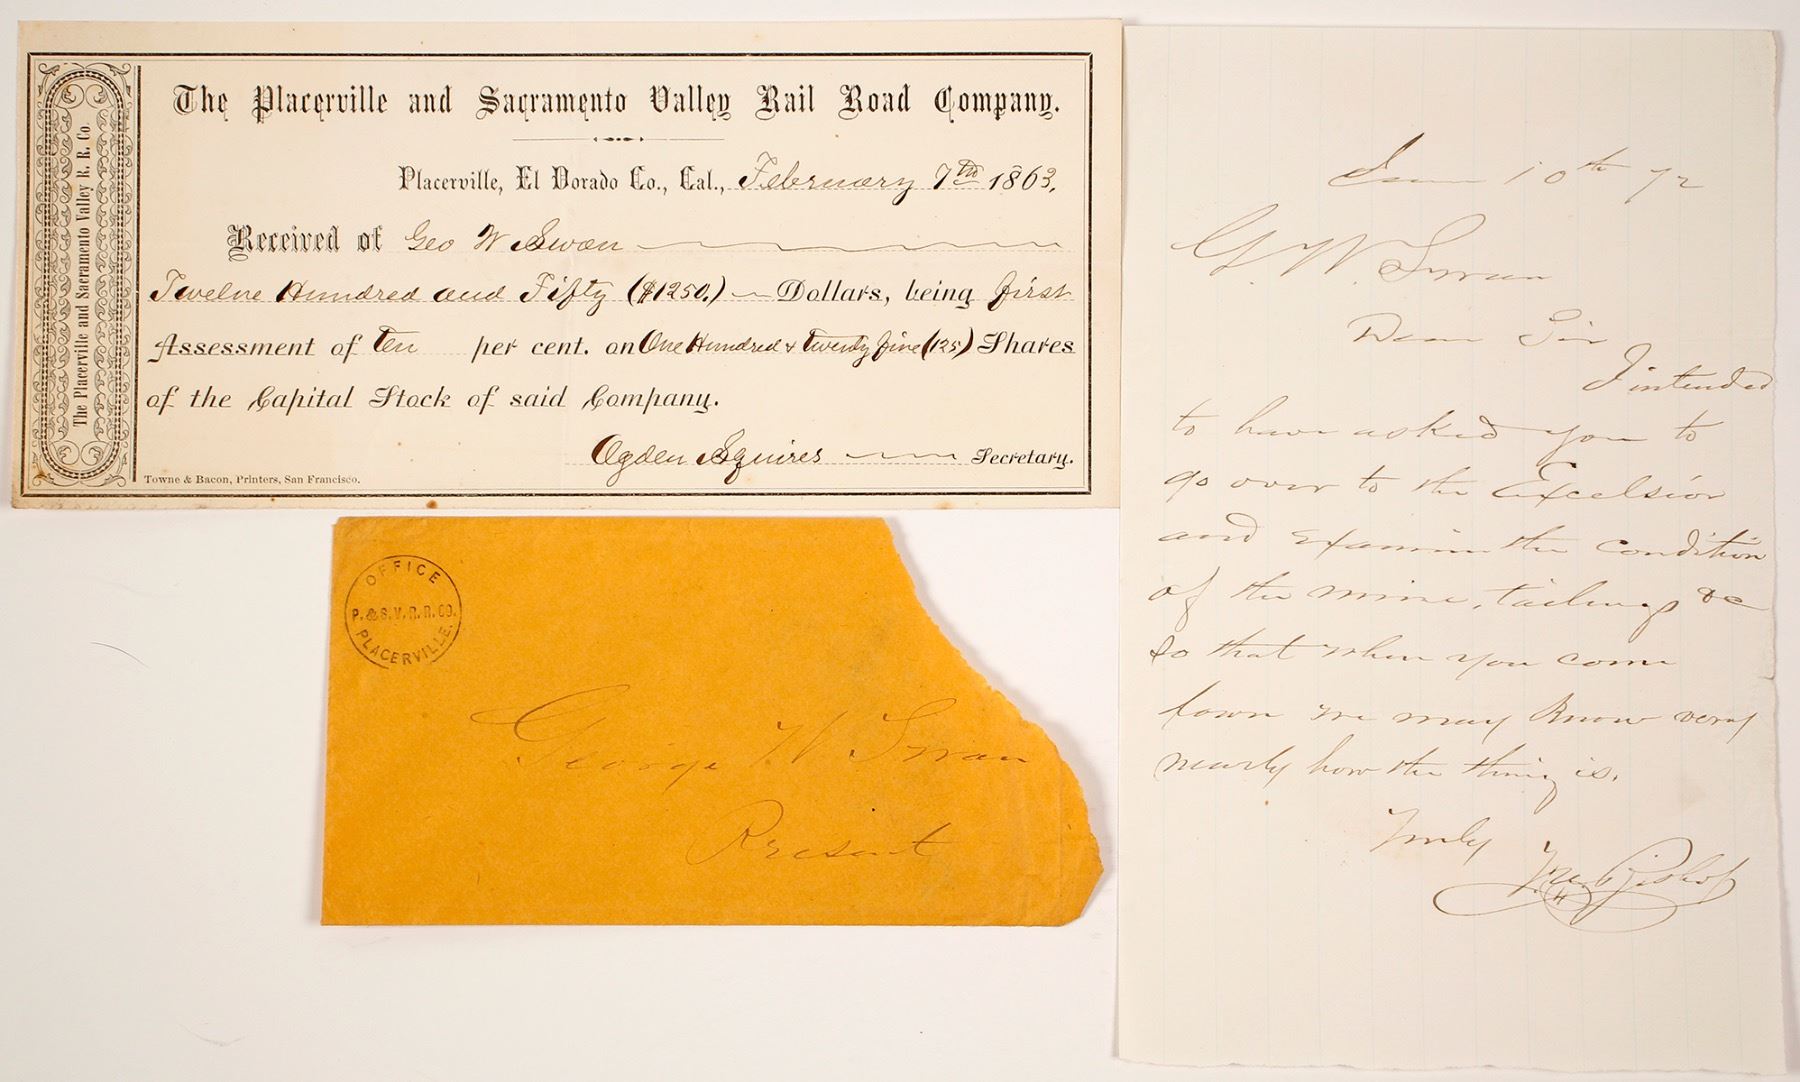 The Placerville and Sacramento Valley R. R. Co.
The Placerville and Sacramento Valley Rail Road Company.
Placerville, El Dorado Co., Cal., February 7th 1863.
Received of Geo W Swan
Twelve Hundred and Fifty ($1250.) Dollars, being first
Assessment of Ten per cent. on One Hundred & twenty five (125) Shares
of the Capital Stock of said Company.
Ogden Squires Secretary.
Towne & Bacon, Printers, San Francisco.
OFFICE
P. & S. V. R. R. CO.
PLACERVILLE.
George W Swan
Present
10th 72
G. W. Swan
Dear Sir
I intended
to have asked you to
go over to the Excelsior
and examine the condition
of the mine, tailings &c
so that when you come
down we may know very
nearly how the thing is.
Truly
Bishop